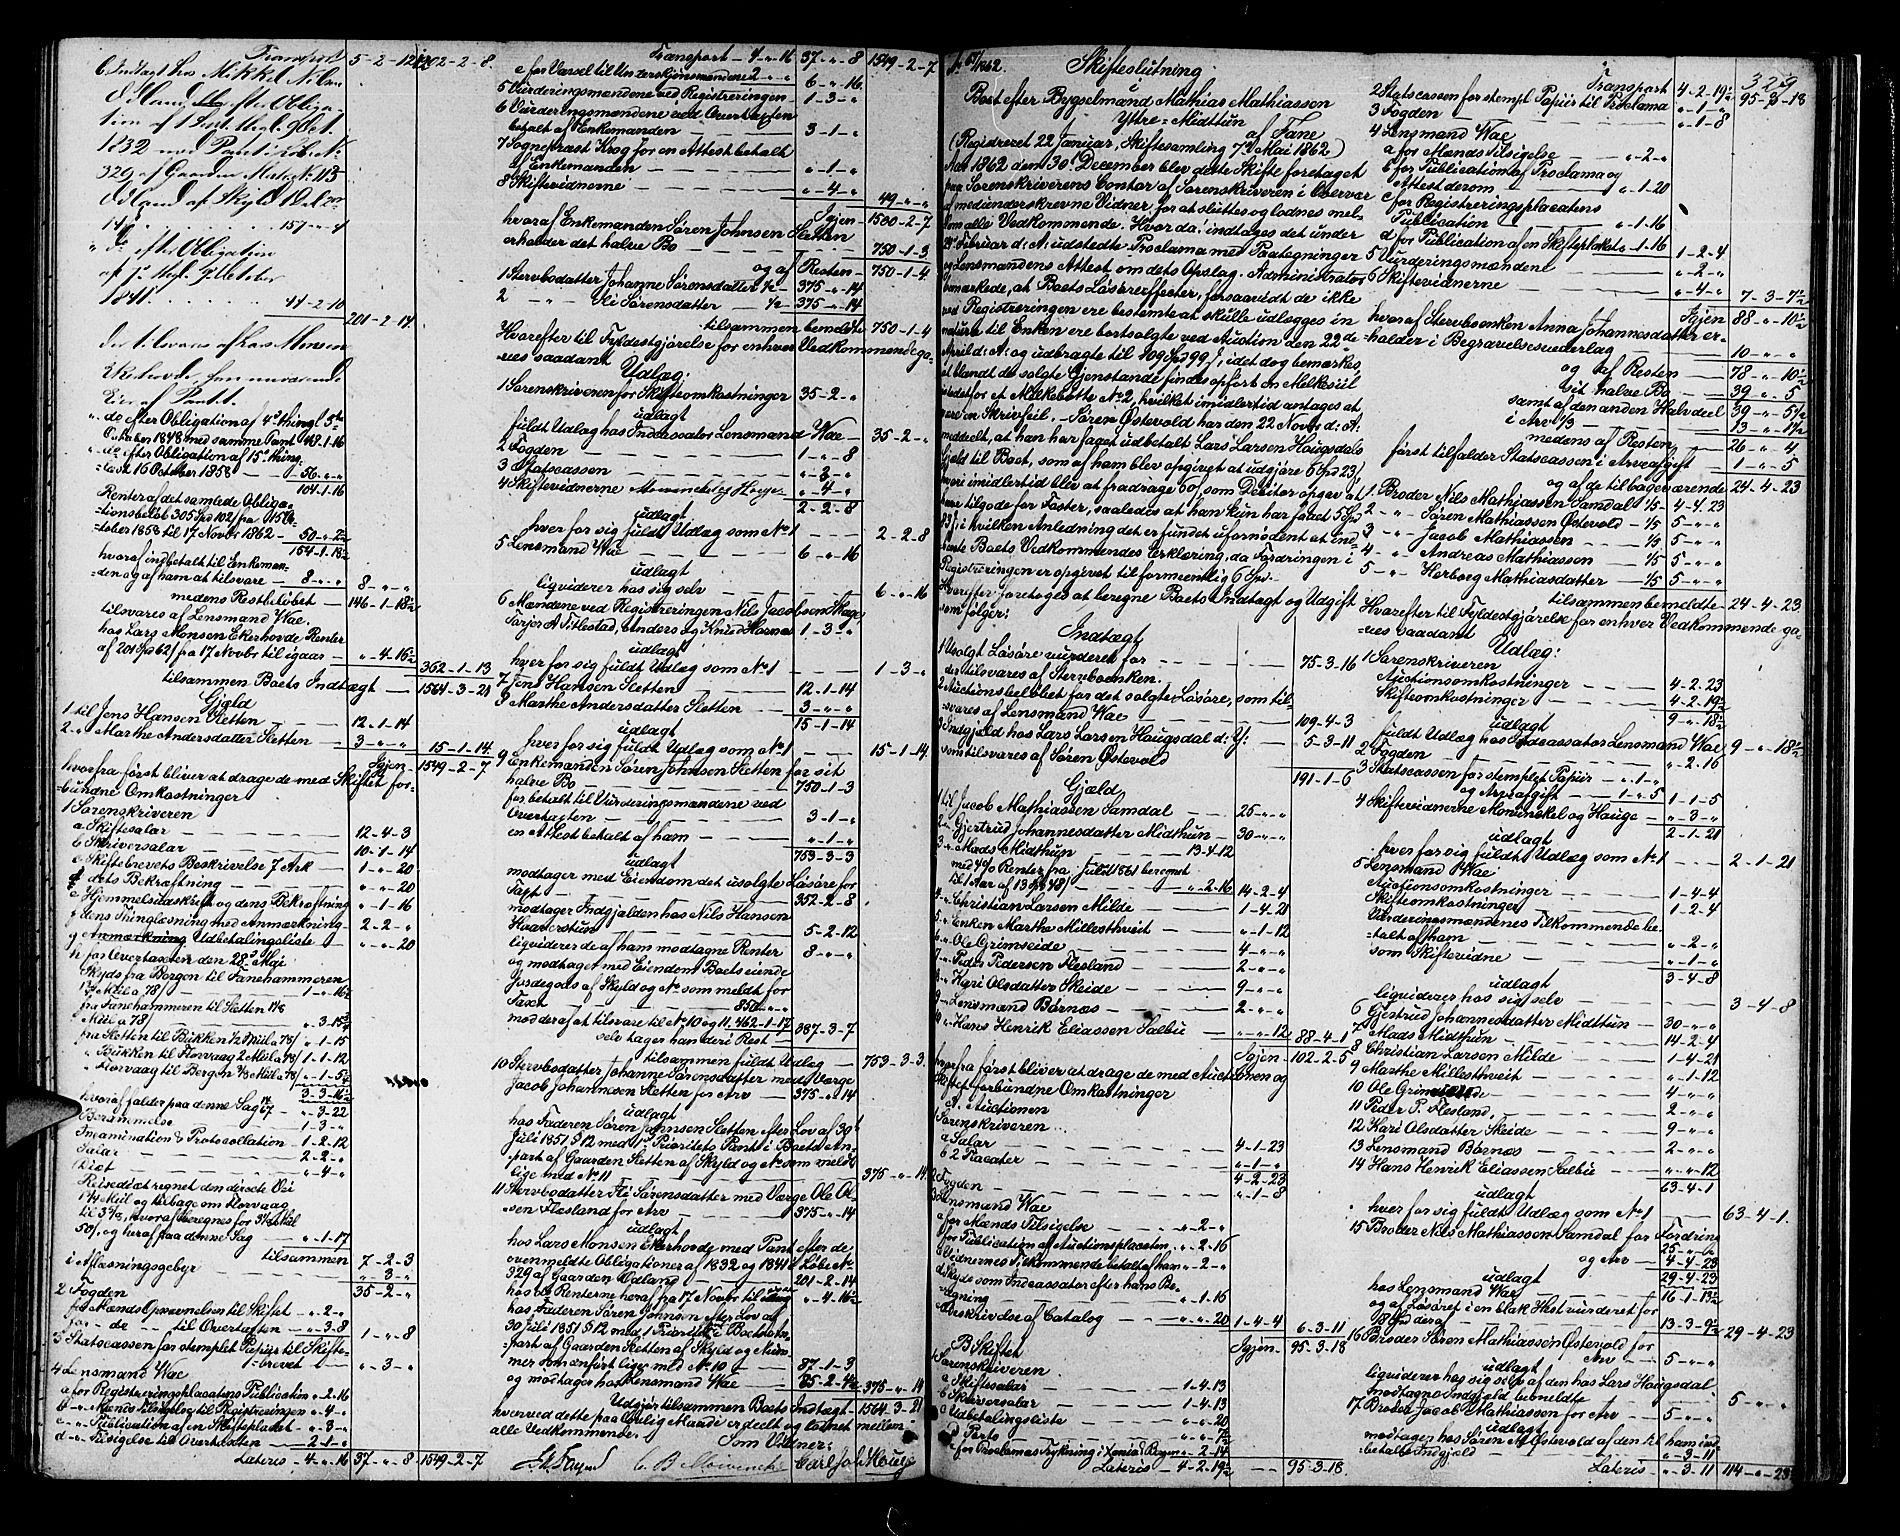 Transport 5-2-12 1202-2-8.
Indtagt hos Mikkel Nilsen
Ødland efter Obliga-
tion af 1 Sept. Thgl. 9 Oct.
1832 med Pant i Løbe No
329 af Gaarden Matr. No 113
Ødland af Skyld
157-"-4
" do efter Obligation
1841 44-2-10
201-2-14.
der tilsvares af Lars Monsen
Ekerhovde
Eier af Pantet.
" do efter Obligation af 4de thingl. 5te
October 1848 med samme Pant 48-1-16
" do efter Obligation af 15de thing-
læst 16 October 1858 56-"-"
104-1-16
Renter af det samlede Obliga-
tionsbeløb 305 Spd 102 fra 15 Oc-
tober 1858 til 17 Novbr 1862 50-"-2½
154-1-18½
hvoraf indbetalt til Enkeman-
den og af ham at tilsvare 8-"-" 8-"-"
medens Restbeløbet 146-1-18½
tilsvares af Lensmand Wae.
hos Lars Monsen Ekerhovde Renter
af 201 Spd 62 fra 17 Novbr til igaar "-4-16½
362-1-13
tilsammen Boets Indtægt 1564-3-21
Gjæld
1 til Jens Hansen Sletten 12-1-14
2 " Marthe Andersdatter Sletten 3-"-" 15-1-14.
Igjen 1549-2-7
hvorfra først bliver at drage de med Skiftet for-
bundne Omkostninger
1 Sorenskriveren
a Skiftesalar 12-4-3
b Skriversalar 10-1-14
c Skiftebrevets Beskrivelse 7 Ark 1-"-20
d dets Bekræftning "-"-20
e Hjemmelsudskrift og dens Bekræftning "-1-16
f dens Thinglæsning med Anmærkning 2-2-"
g Anmærkning Udbetalingsliste "-"-20
h for Overtaxten den 28de Mai
Skyds fra Bergen til Fanehammeren
Miil a 78 1-"-16½
fra Fanehammeren til Sletten 1⅛
Miil a 78 "-3-15¾
fra Sletten til Bukken ½ Miil a 78 "-1-15
" Bukken til Horvaag 2 Miil a 78 1-1-12
" Horvaag til Bergen ⅜ Miil a 78 "-1-5¼
3-3-16½
hvoraf falder paa denne Sag "-3-22
Berammelse 1-3-"
Examination & Protocollation 1-2-12
Salar 2-2-"
Diæt "-4-"
Reisediæt regnet den directe Vei
1¼ Miil og tilbage om Horvaag
til 3⅞, hvoraf beregnes for 3½ Miil
50, og heraf paa denne Sag "-1-17
tilsammen 7-2-3
i Aflæsningsgebyr "-3-"
35-2-"
2 Fogden
for Mænds Opnævnelsen til Skiftet "-2-"
for do til Overtaxten "-3-8 1-"-8
3 Statscassen for stemplet Papiir til Skifte-
brevet "-3-"
4 Lensmand Wae
a for Registreringsplacatens Publication "-2-16
b " Mænds Tilsigelse til Registreringen "-4-"
c " Publication af en Skifteplacat "-3-"
d " Tilsigelse til Overtaxten 2-1-"
Lateris 4-"-16 37-"-8 1549-2-7

Transport 4-"-16 37-"-8 1549-2-7
e for Varsel til Underskjønsmændene 2-"-" 6-"-16
5 Vurderingsmændene ved Registreringen 1-3-"
6 Vurderingsmændene ved Overtaxten
betalt af Enkemanden 3-1-"
7 Sognepræst Krog for en Attest betalt
af Enkemanden "-1-"
8 Skiftevidnerne "-4-"
49-"-"
Igjen 1500-2-7
hvoraf Enkemanden Søren Johnsen Sletten
erholder det halve Bo 750-1-3
og af Resten 750-1-4
1 Stervbodatter Johanne Sørensdatter ½ 375-"-14
2 " Eli Sørensdatter ½ 375-"-14
tilsammen bemeldte 750-1-4
Hvorefter til Fyldestgjørelse for enhver Vedkommende gø-
res saadant Udlæg:
1 Sorenskriveren for Skifteomkostninger 35-2-"
udlagt
fuldt Udlæg hos Incassator Lensmand Wae 35-2-"
2 Fogden 1-"-8
3 Statscassen "-3-"
4 Skiftevidnerne Mowinckel og Hauge "-4-"
2-2-8
udlagt
hver for sig fuldt Udlæg som No 1 2-2-8
5 Lensmand Wae 6-"-16
udlagt
liqviderer hos sig selv 6-"-16
6 Mændene ved Registreringen Nils Jacobsen Skage,
Torjer A Titlestad, Anders og Knud Hamre 1-3-"
udlagt
hver for sig fuldt Udlæg som No 1 1-3-"
7 Jens Hansen Sletten 12-1-14
8 Marthe Andersdatter Sletten 3-"-"
15-1-14
udlagt
hver for sig fuldt Udlæg som No 1 15-1-14
9 Enkemanden Søren Johnsen Sletten for sit
halve Bo 750-1-3
for betalt til Vurderingsmændene ved
Overtaxten 3-1-"
en Attest betalt af ham "-1-"
753-3-3
udlagt
modtager med Eiendom det usolgte Løsøre for
Taxt 352-2-8
modtager Indgjælden hos Nils Hansen
Hvarerstun 5-2-12
liqviderer de af ham modtagne Renter 8-"-"
og modtager med Eiendom Boets eiende
Jordegods af Skyld og No som meldt for
Taxen 850-"-"
mod deraf at tilsvare til No 10 og 11. 462-1-17 387-3-7
selv tager han deri Rest
tilsammen fuldt Udlæg 753-3-3.
10 Stervbodatter Johanne Sørensdatter med Værge
Jacob Johannesen Sletten for Arv 375-"-14
udlagt
hos Faderen Søren Johnsen Sletten efter Lov af 30te
Juli 1851 § 12 med 1ste Prioritets Pant i Boets An-
part af Gaarden Sletten af Skyld og No som meldt
lige med No 11 375-"-14.
11 Stervbodatter Eli Sørensdatter med Værge Ole Ol-
sen Flesland for Arv 375-"-14
udlagt
hos Lars Monsen Ekerhovde med Pant efter de
ovenmeldte Obligationer af 1832 og 1841 i Løbe No
329 af Gaarden Ødland 201-2-14
hos do Renterne heraf fra 17 Novbr til igaar "-4-16½
hos Faderen Søren Johnsen efter Lov af
30 Juli 1851 § 12 med 1 Prioritet i Boets An-
part af Gaarden Sletten af Skyld og Num-
mer som anført lige med No 10 87-1-3
og modtager hos Lensmand Wae 85-2-4½ 375-"-14
Udgjør tilsammen Boets Indtægt 1564-3-21
hvorved dette paa Ovrig Maade er deelt og sluttet mellem
alle Vedkommende.
Som Vidner:
C. B. Mowinckel Carl Joh. Hauge

1862. Skifteslutning
i
Boet efter Bygselmand Mathias Mathiassen
Ytre-Midttun
af Fane
(Registreret 22 Januar, Skiftesamling 7de Mai 1862)
Aar 1862 den 30te December blev dette Skifte foretaget
paa Sorenskriverens Contor af Sorenskriveren i Overvær
af medunderskrevne Vidner for at sluttes og lodnes mel-
lem alle Vedkommende. Hvorda: indtages det under
28de Februar d: A: udstedte Proclama med Paategninger
og Lensmandens Attest om dets Opslag. Administrator
bemærkede, at Boets Løsøreeffecter, forsaavidt de ikke
ved Registreringen ere bestemte at skulle udlægges in
natura til Enken ere bortsolgte ved Auction den 22de
April d: A: og udbragte til 109 Spd 99 s, idet dog bemærkes,
at blandt de solgte Gjenstande findes opført en Melkesiil
istedetfor et Mælkebøtte No 2, hvilket imidlertid antages at
være en Skrivfeil. Søren Østevold har den 22 Novbr d: A:
meddeelt, at han har faaet udbetalt Lars Larsen Haugsdals
Gjeld til Boet, som af ham blev opgivet at udgjøre 6 Spd 23,
hvori imidlertid blev at fradrage 60 s som Debitor opgav at
have tilgode for Faster, saaledes at han kun har faaet 5 Spd
83 s; i hvilken Anledning det er fundet ufornødent at ind-
hente Boets Vedkommendes Erklæring, da Fordringen i
Registreringen er opgivet til formeentlig 6 Spd.
Hvorefter foretoges at beregne Boets Indtægt og Udgift
som følger:
Indtægt
1 Usolgt Løsøre vurderet for 75-3-16
der tilsvares af Stervboenken.
2 Auctionsbeløbet for det solgte Løsøre, som til-
svares af Lensmand Wae 109-4-3
3 Indgjeld hos Lars Larsen Haugsdal d: Y: 5-3-11
som tilsvares af Søren Østevold
191-1-6
Gjæld
1 til Jacob Mathiassen Samdal 25-"-"
2 " Gjertrud Johannesdatter Midthun 30-"-"
3 " Mads Midthun 13-4-12
med 4% Renter fra Juli 1861 beregnet
til 1 Aar af 13 Spd 48 "-2-16 14-2-4
4 " Christian Larsen Milde 1-4-21
5 " Enken Marthe Millesthveit "-1-12
6 " Ole Grimseide 4-"-"
7 " Peder Pedersen Flesland 2-"-"
8 " Kari Olsdatter Skeide 9-"-"
9 " Lensmand Børnæs 2-"-"
10 " Hans Henrik Eliassen Salbu "-"-12 88-4-1
Igjen 102-2-5
hvorfra først bliver at drage de med Auctionen og
Skiftet forbundne Omkostninger
A. Auctionen
1 Sorenskriveren
a Salar 4-1-23
b 2 Placater "-1-"
4-2-23
2 Fogden "-1-8
3 Lensmand Wae
a for Mænds Tilsigelse "-2-"
b for Publication af Auctionsplacaten "-2-16
c Vidnernes Tilkommende betalt af ham "-2-"
d Skyds som Incassator efter hans Be-
regning "-1-16
e Renskrivelse af Catalog "-"-20 1-4-4 6-3-11
Igjen 95-3-18
B Skiftet
1 Sorenskriveren
a Skiftesalar 1-4-13
b Skriversalar 1-4-13
c Udbetalingsliste "-"-20
d Porto "-"-7½
e for Proclamas Trykning i Xania & Bergen "-2-14
Lateris 4-2-19½ 95-3-18.

329
Transport 4-2-19½ 95-3-18
2 Statscassen for stempl. Papiir til Proclama "-1-"
3 Fogden "-1-8
4 Lensmand Wae
a for Mænds Tilsigelse "-2-"
b for Publication af Proclama og
Attest derom "-1-20
c for Registreringsplacatens
Publication "-1-16
d for Publication af en Skifteplakat "-1-16 1-2-4
5 Vurderingsmændene "-2-"
6 Skiftevidnerne "-4-"
7-3-7½
Igjen 88-"-10½
hvoraf Stervboenken Anna Johannesdatter er-
holder i Begravelsesuderlag 10-"-"
og af Resten 78-"-10½
sit halve Bo 39-"-5
samt af den anden Halvdeel 39-"-5½
i Arv ⅓ 13-"-1½
medens af Resten 26-"-4
først tilfalder Statscassen i Arveafgift 1-"-5
og af de tilbageværende 24-4-23
1 Broder Nils Mathiassen Samdal ⅕ 4-4-23
2 " Søren Mathiassen Østevold ⅕ 5-"-"
3 " Jacob Mathiassen ⅕ 5-"-"
4 " Andreas Mathiassen ⅕ 5-"-"
5 " Herborg Mathiasdatter ⅕ 5-"-"
tilsammen bemeldte 24-4-23.
Hvorefter til Fyldestgjørelse for enhver Vedkommende gø-
res saadant Udlæg:
1 Sorenskriveren
Auctionsomkostninger 4-2-23
Skifteomkostninger 4-2-19½
9-"-18½
udlagt
fuldt Udlæg hos Incassator Lensmand Wae 9-"-18½
2 Fogden "-2-16
3 Statscassen for stemplet Papiir "-1-"
og Arveafgift 1-"-5 1-1-5
4 Skiftevidnerne Mowinckel og Hauge "-3-"
2-1-21
udlagt
hver for sig fuldt Udlæg som No 1 2-1-21
5 Lensmand Wae
Auctionsomkostninger 1-4-4
Skifteomkostninger 1-2-4
Vurderingsmændenes Tilkommende be-
talt af ham "-2-"
som Skiftevidne "-1-"
3-4-8
udlagt
liqviderer hos sig selv 3-4-8
6 Gjertrud Johannesdatter Midthun 30-"-"
7 Mads Midthun 14-2-4
8 Christian Larsen Milde 1-4-21
9 Marthe Millesthveit "-1-12
10 Ole Grimseide 4-"-"
11 Peder P. Flesland 2-"-"
12 Kari Olsdatter Skeide 9-"-"
13 Lensmand Børnæs 2-"-"
14 Hans Henrik Eliassen Salbu "-"-12
63-4-1
udlagt
hver for sig fuldt Udlæg som No 1 63-4-1.
15 Broder Nils Mathiassen Samdal for Fordring
25-"-"
og Arv 4-4-23
29-4-23
udlagt
hos Lensmand Wae 16-1-13½
og af Løsøret i en blak Hest vurderet for
18 Spd deraf 13-3-9½ 29-4-23
16 Broder Søren Mathiassen Østevold for
Arv 5-"-"
udlagt
liqviderer hos sig selv af den hos Lars Haugsdal
modtagne Indgjeld bemeldte 5-"-"
17 Broder Jacob Mathiassen for Arv 5-"-"
udlagt
modtager hos Søren M. Østevold af den til ham ind-
betalte Indgjeld "-3-11
Lateris "-3-11 114-"-23